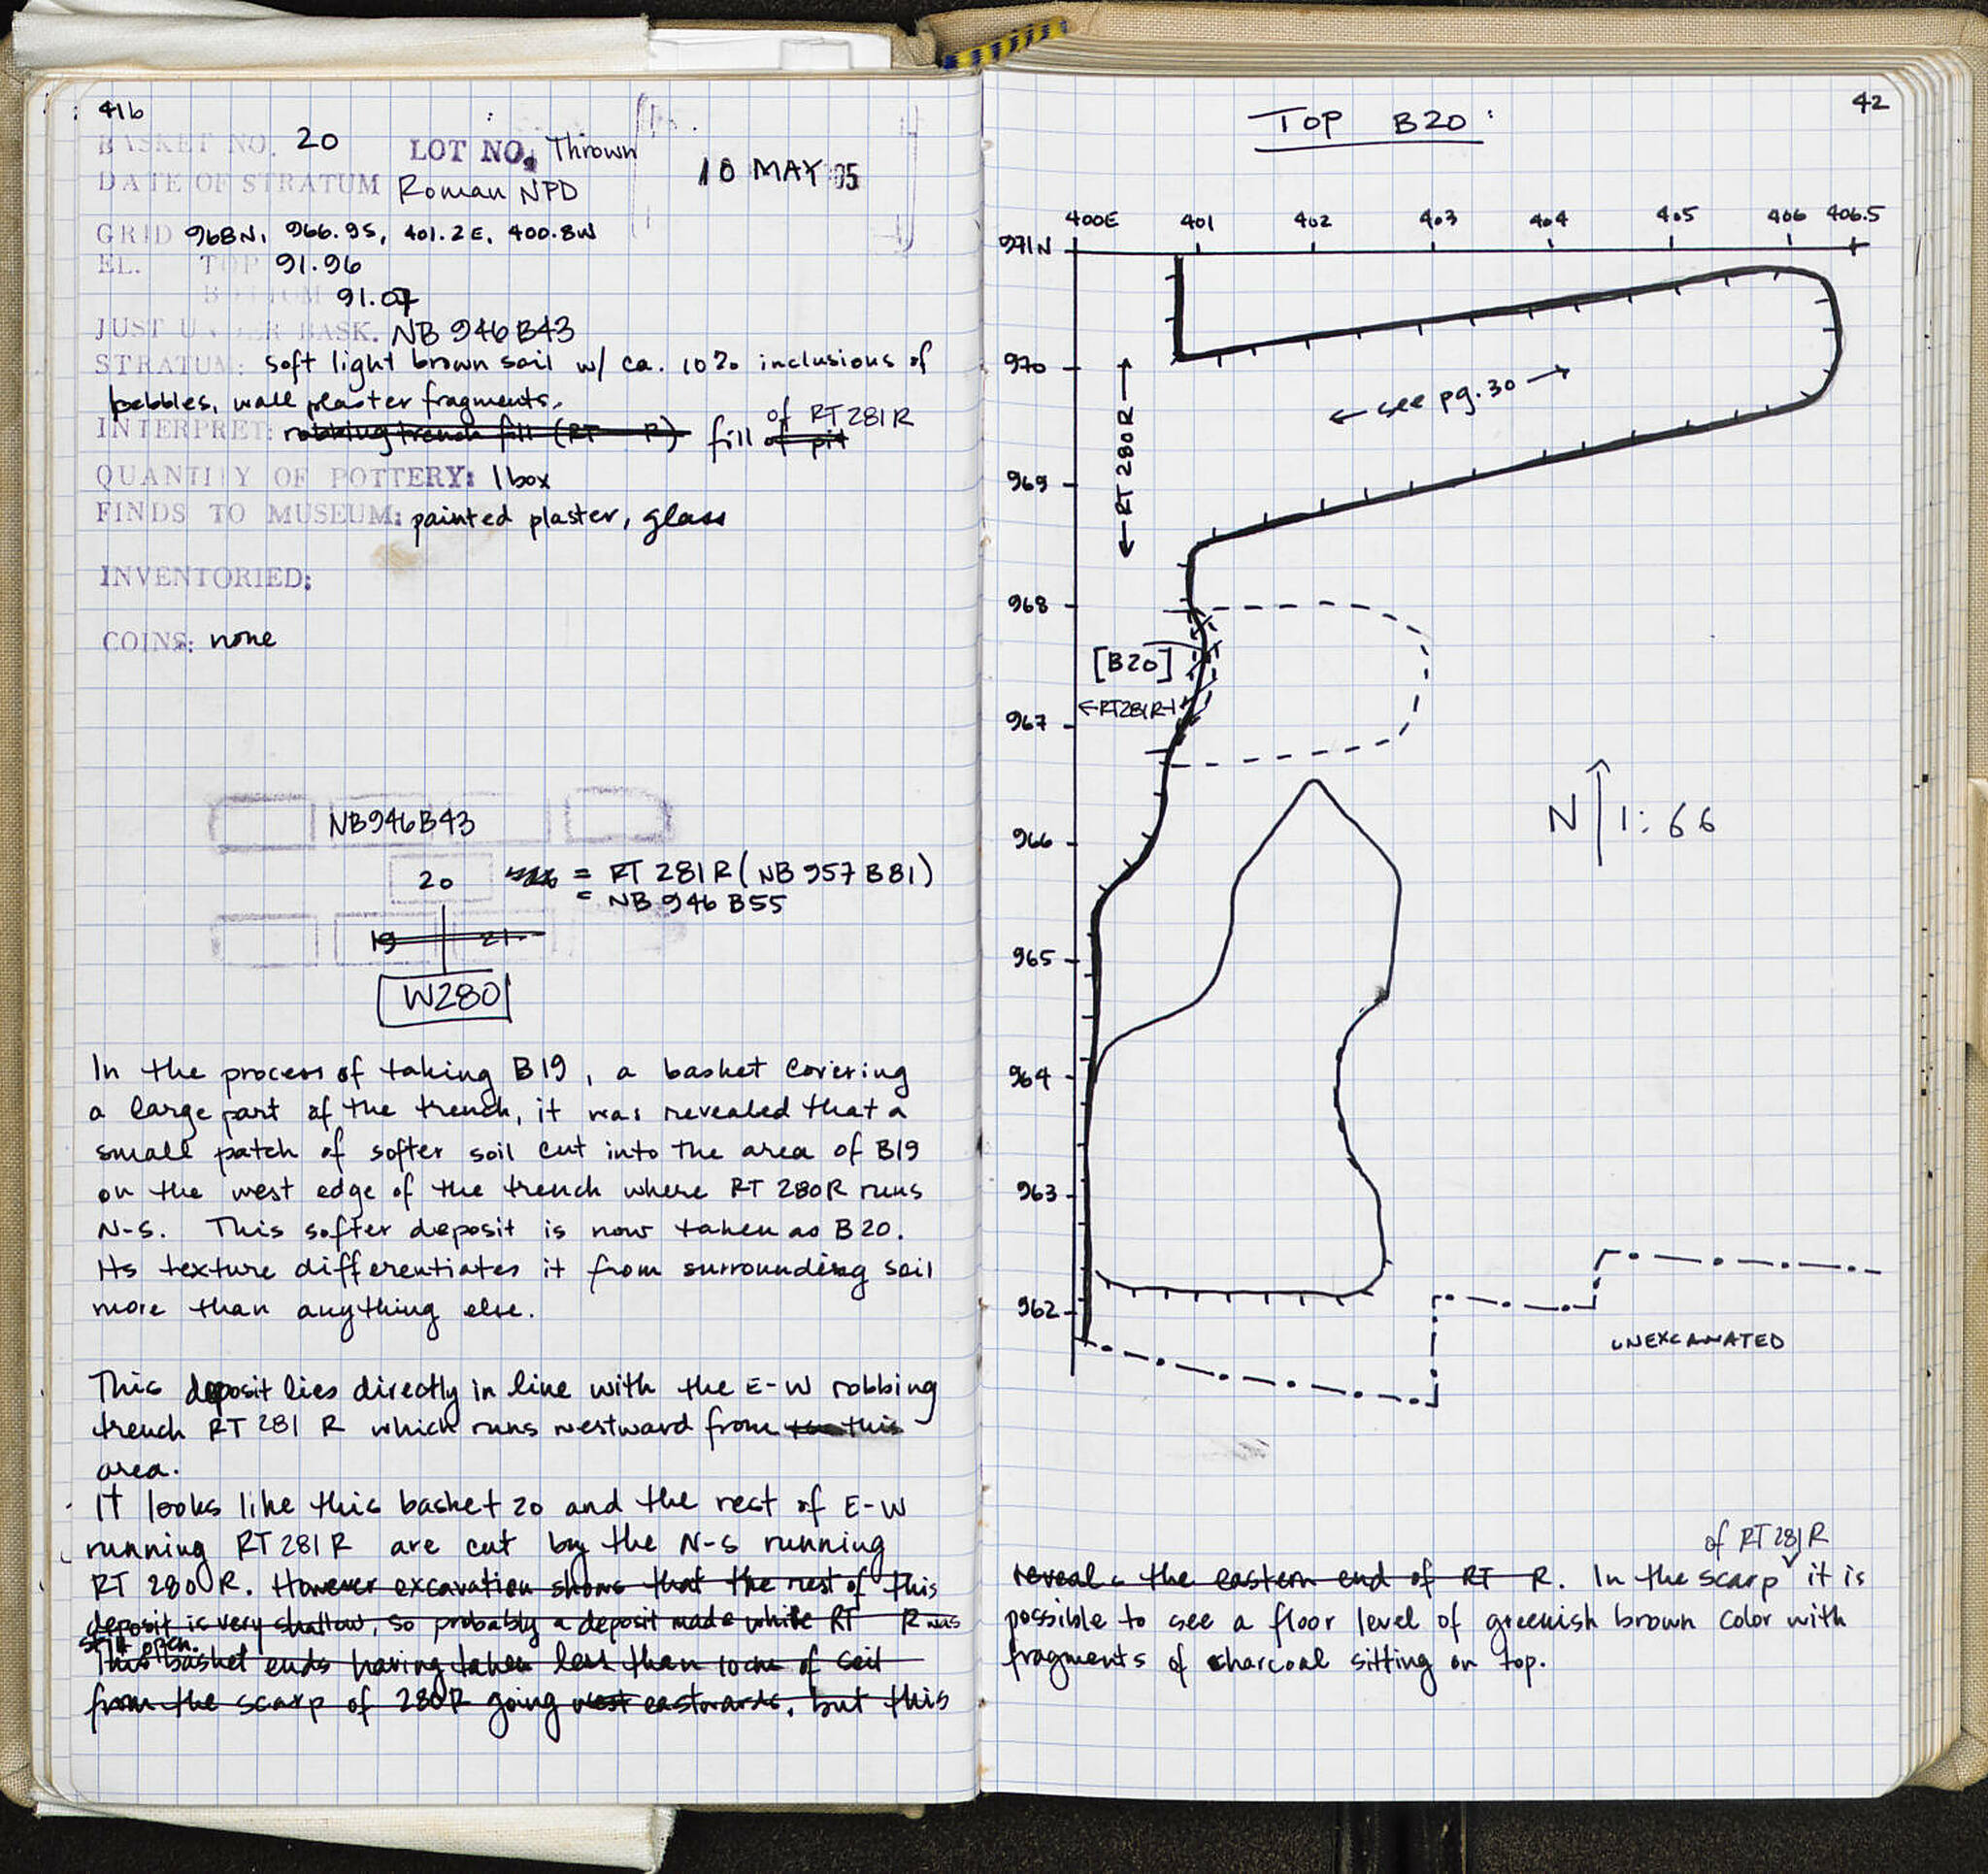 41b
BASKET NO. 20 LOT NO. Thrown
10 MAY 05
DATE OF STRATUM Roman NPD
GRID 968N, 966.9S, 401.2E, 400.8W
EL. TOP 91.96
BOTTOM 91.07
JUST UNDER BASK. NB 946 B43
STRATUM: soft light brown soil w/ ca. 10% inclusions of
pebbles, wall plaster fragments.
of RT 281 R
INTERPRET: robbing trench fill (RT R) fill of pit
QUANTITY OF POTTERY: 1 box
FINDS TO MUSEUM: painted plaster, glass
INVENTORIED:
COINS: none
NB946B43
20 = RT 281 R (NB 957 B81)
= NB 946 B55
19 21
W280
In the process of taking B19, a basket covering
a large part of the trench, it was revealed that a
small patch of softer soil cut into the area of B19
on the west edge of the trench where RT 280R runs
N-S. This softer deposit is now taken as B20.
Its texture differentiates it from surrounding soil
more than anything else.
This deposit lies directly in line with the E-W robbing
trench RT 281 R which runs westward from this
area.
It looks like this basket 20 and the rest of E-W
running RT 281 R are cut by the N-S running
RT 280 R. However excavation shows that the rest of this
deposit is very shallow, so probably a deposit made while RT R was
still open.
This basket ends having taken less than 10cm of soil
from the scarp of 280R going west eastwards, but this
42
TOP B20:
400E 401 402 403 404 405 406 406.5
971N
970
969
968
967
966
965
964
963
962
← RT 280R →
← see pg. 30 →
[B20]
←RT281R→
N 1:66
UNEXCAVATED
of RT 281 R
reveals the eastern end of RT R. In the scarp it is
possible to see a floor level of greenish brown color with
fragments of charcoal sitting on top.